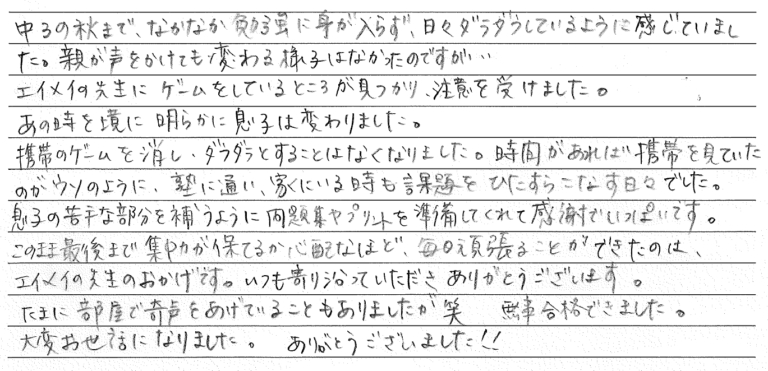 中3の秋まで、なかなか勉強に身が入らず、日々ダラダラしているように感じていまし
た。親が声をかけても変わる様子はなかったのですが‥
エイメイの先生にゲームをしているところが見つかり、注意を受けました。
あの時を境に明らかに息子は変わりました。
携帯のゲームを消し、ダラダラとすることはなくなりました。時間があれば携帯を見ていた
のがウソのように、塾に通い、家にいる時も課題をひたすらこなす日々でした。
息子の苦手な部分を補うように問題集やプリントを準備してくれて感謝でいっぱいです。
このまま最後まで集中力が保てるか心配なほど、毎日頑張ることができたのは、
エイメイの先生のおかげです。いつも寄り沿っていただきありがとうございます。
たまに部屋で奇声をあげていることもありましたが笑 無事合格できました。
大変お世話になりました。 ありがとうございました!!